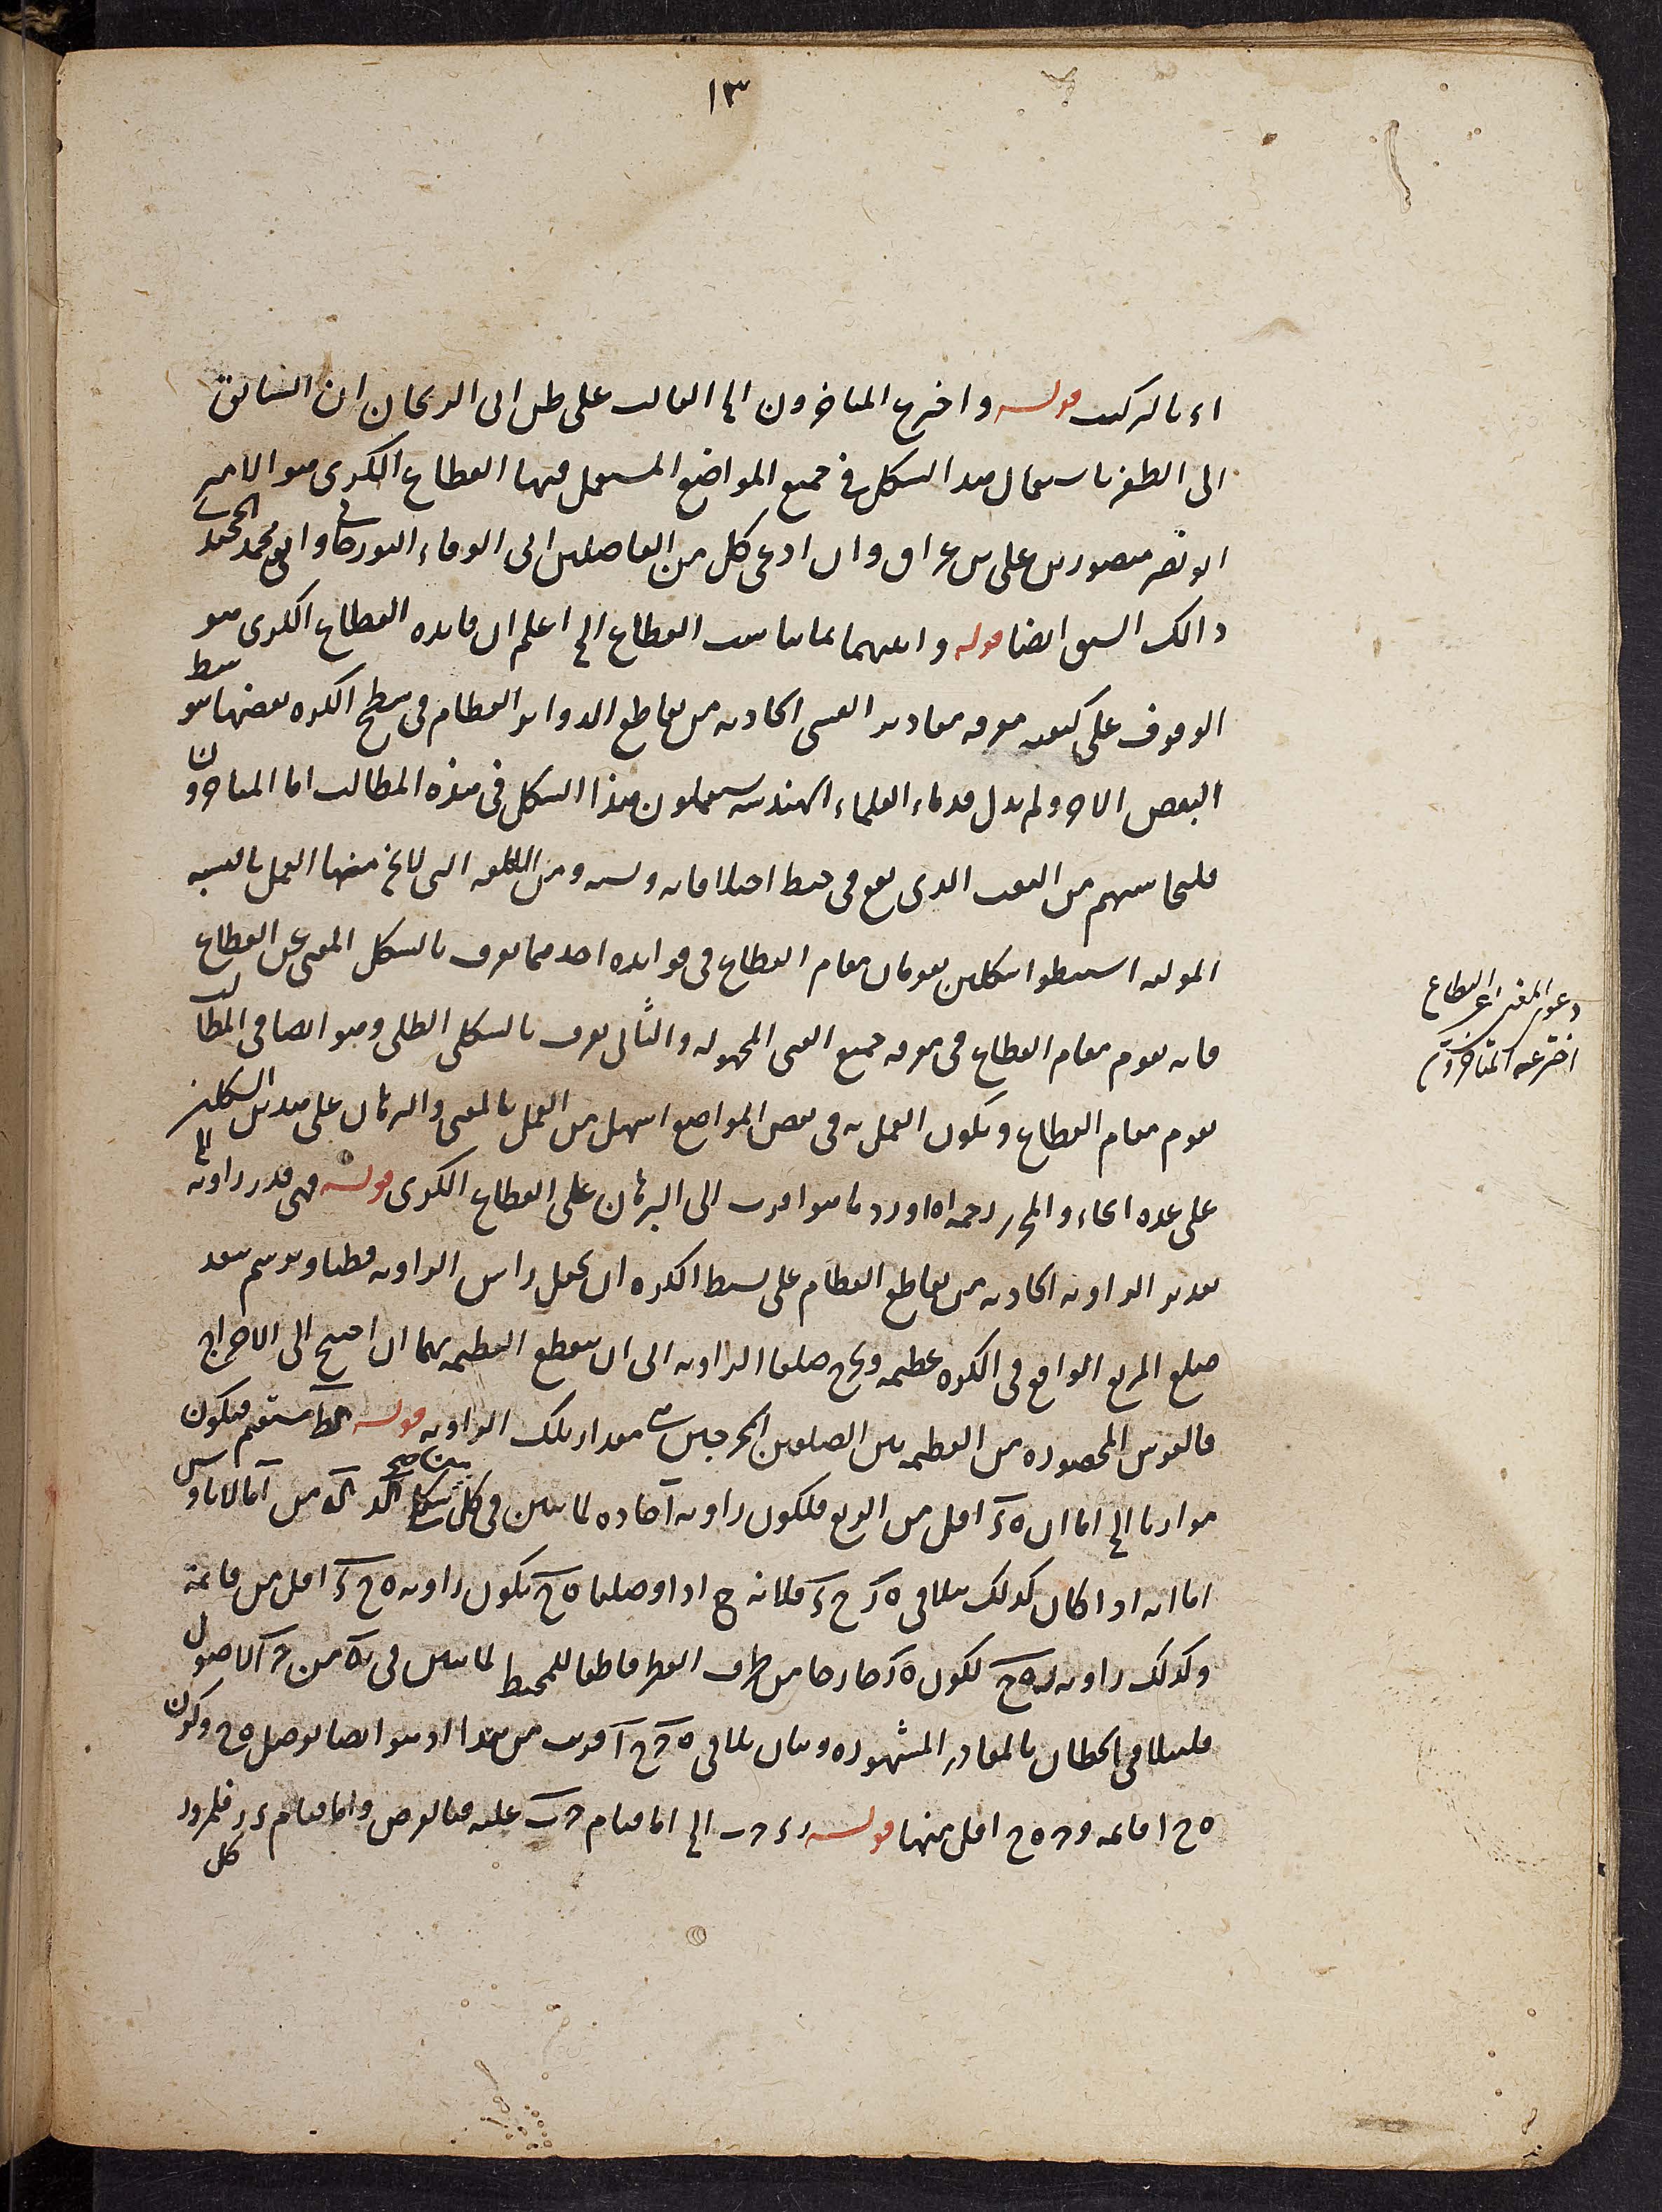 ١٣
اء بالتركيب قوله واخترع المتاخرون الخ الغالب على ظن ابى الريحان ان السابق
الى الظفر باستعمال هذا الشكل فى جميع المواضع المستعمل فيها القطاع الكرى هو الامير
ابو نصر منصور بن على بن عراق وان ادعى كل من الفاضلين ابى الوفاء البوزجانى وابى محمد الخجندى
ذالك السبق ايضا قوله واتبعهما بما يناسب القطاع الخ اعلم ان فايده القطاع الكرى هو
الوقوف على كيفيه معرفه مقادير القسى الحادثه من تقاطع الدوائر العظام فى سطح الكره بعضها بتوسط
البعض الاخر ولم يزل قدماء العلماء الهندسه يستعملون هذا الشكل فى هذه المطالب اما المتاخرون
فلتحاشيهم من التعب الذى يقع فى ضبط اختلافاته ونسبه ومن الكلفه التى لايخ منها العمل بالنسبه
المولفه استنبطوا شكلين يقومان مقام القطاع فى فوايده احدهما يعرف بالشكل المغنى عن القطاع
فانه يقوم مقام القطاع فى معرفه جميع القسى المجهوله والثانى يعرف بالشكل الظلى وهو ايضا فى المطالب
يقوم مقام القطاع ويكون العمل به فى بعض المواضع اسهل من العمل بالمغنى والبرهان على هذين الشكلين
على عده انحاء والمحرر رحمه الله اورد ما هو اقرب الى البرهان على القطاع الكرى قوله فهى قدر زاويه الخ
تقدير الزاويه الحادثه من تقاطع العظام على بسيط الكره ان يجعل راس الزاويه قطبا ويرسم ببعد
ضلع المربع الواقع فى الكره عظيمه ويخرج ضلعا الزاويه الى ان يقطع العظيمه بهما ان احتيج الى الاخراج
فالقوس المحصوره من العظيمه بين الضلعين المخرجين هى مقدار تلك الزاويه قوله خط مستقيم فيكون
موازيا الخ اما ان ه ز اقل من الربع فلكون زاويه آ حاده لما تبين فى كل شكل من آ مالاناوس
اما انه اذا كان كذلك يتلاقى ه ز ح ء فلانه ح اذا وصلنا ه ح يكون زاويه ه ح ء اقل من قائمه
وكذلك زاويه ز ه ح لكون ه ز خارجا من طرف القطر قاطعا للمحيط لما تبين فى يه من ج الاصول
فليتلاقى الخطان بالمصادره المشهوره وبيان تلاقى ه ز ح آ قريب من هذا اذ هو ايضا بوصل ه ح وكون
ه ح ا قائمه و ز ه ح اقل منها قوله ء ز ب الخ اما قيام ز ب عليه فبالفرض واما قيام ء ز فلمرور
كل
دعوى المغنى عن القطاع
اخترعه المتاخرون